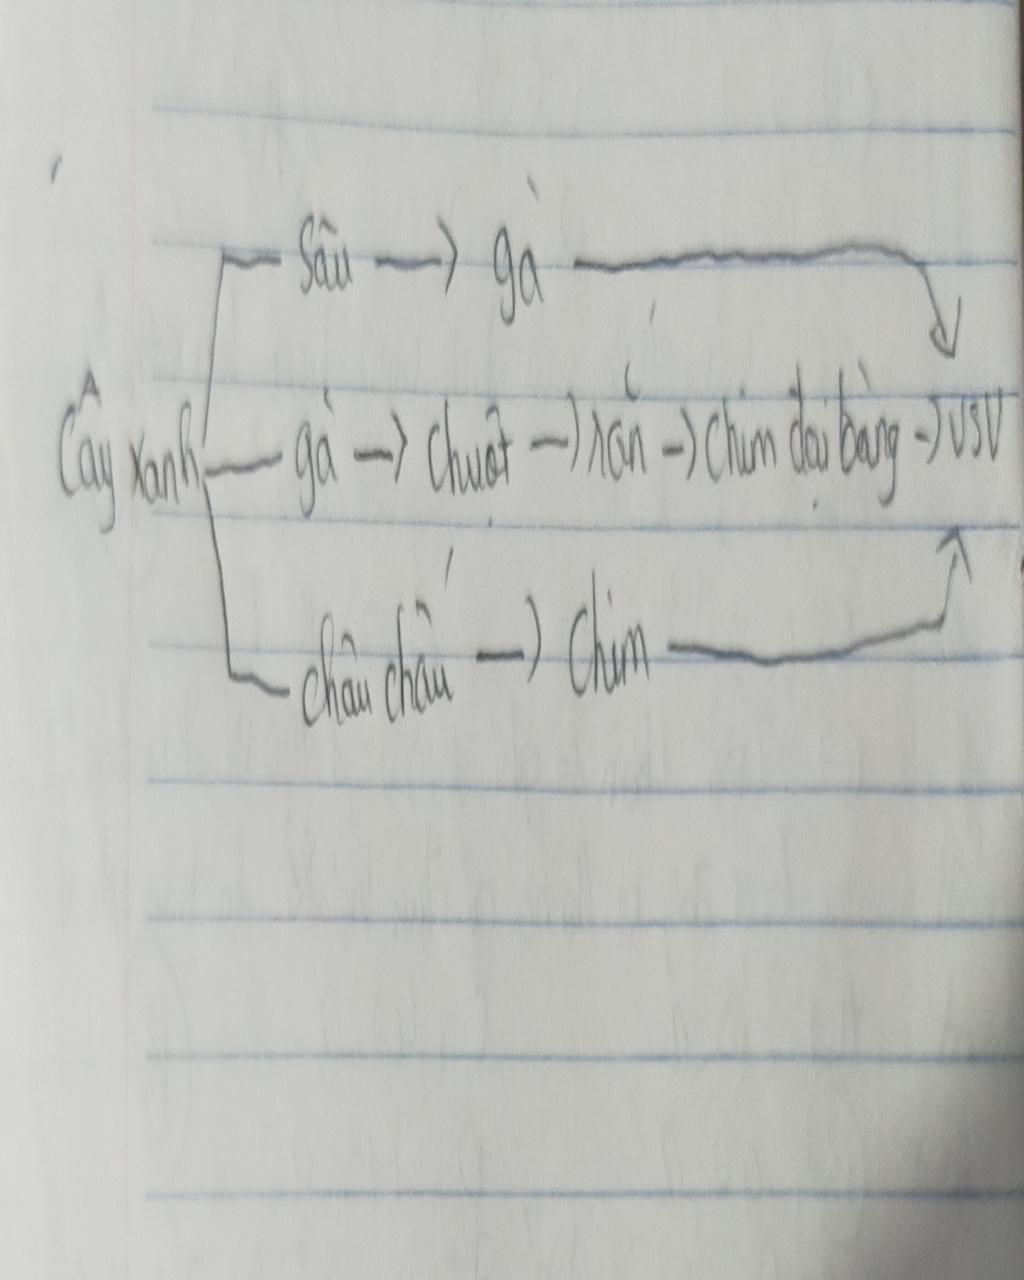 Sâu → gà
Cây xanh — gà → Chuột → rắn → Chim đại bàng → VSV
châu chấu → Chim